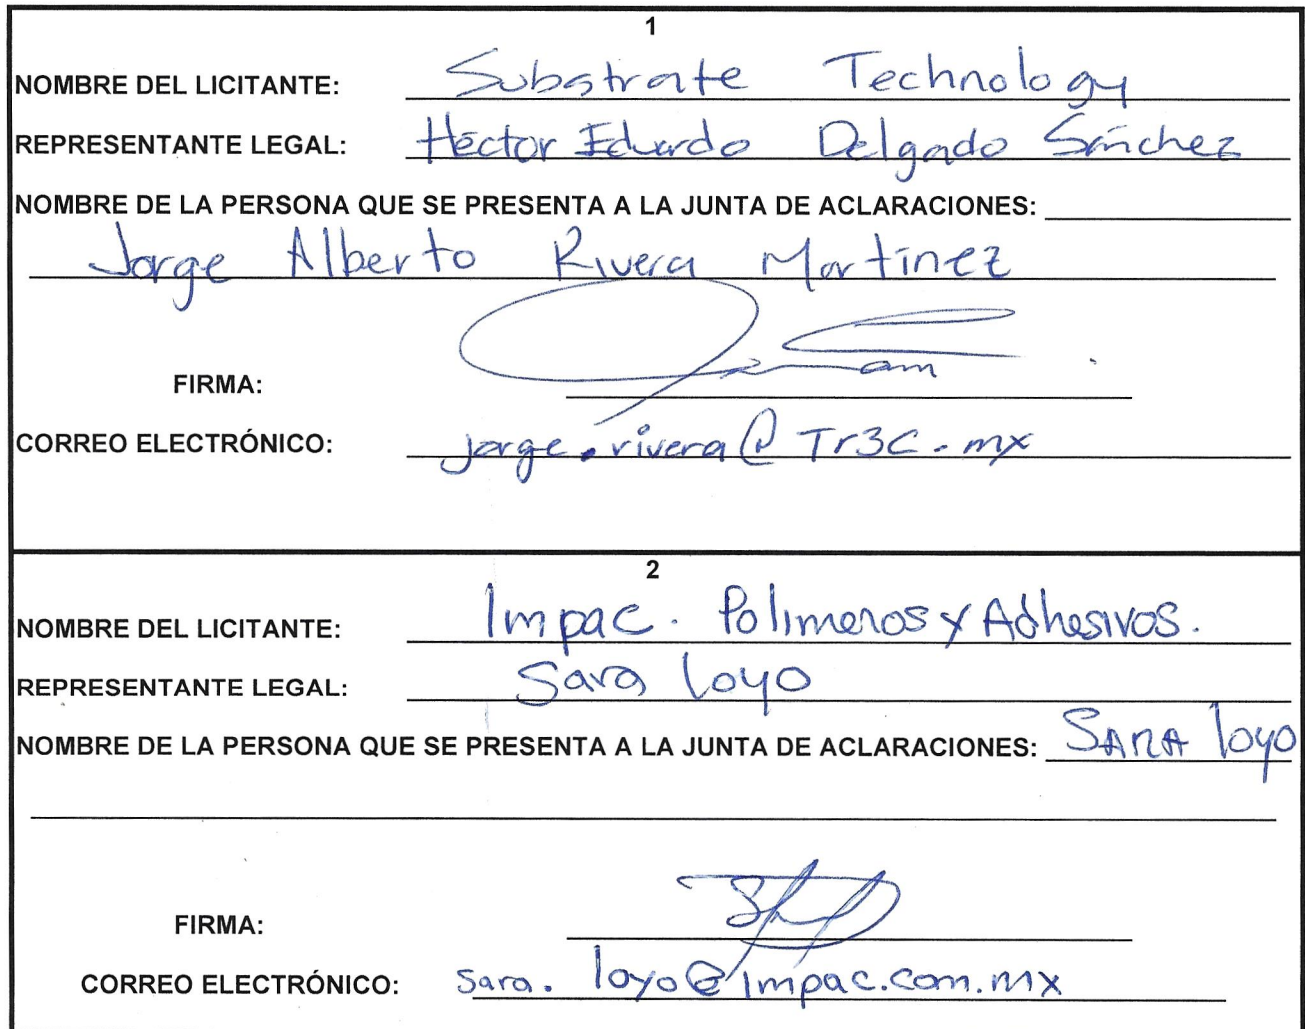 1
NOMBRE DEL LICITANTE: Substrate Technology
REPRESENTANTE LEGAL: Héctor Eduardo Delgado Sánchez
NOMBRE DE LA PERSONA QUE SE PRESENTA A LA JUNTA DE ACLARACIONES:
Jorge Alberto Rivera Martínez
FIRMA:
CORREO ELECTRÓNICO: jorge.rivera@Tr3C.mx
2
NOMBRE DEL LICITANTE: Impac. Polimeros y Adhesivos.
REPRESENTANTE LEGAL: Sara Loyo
NOMBRE DE LA PERSONA QUE SE PRESENTA A LA JUNTA DE ACLARACIONES: SARA loyo
FIRMA:
CORREO ELECTRÓNICO: sara.loyo@impac.com.mx